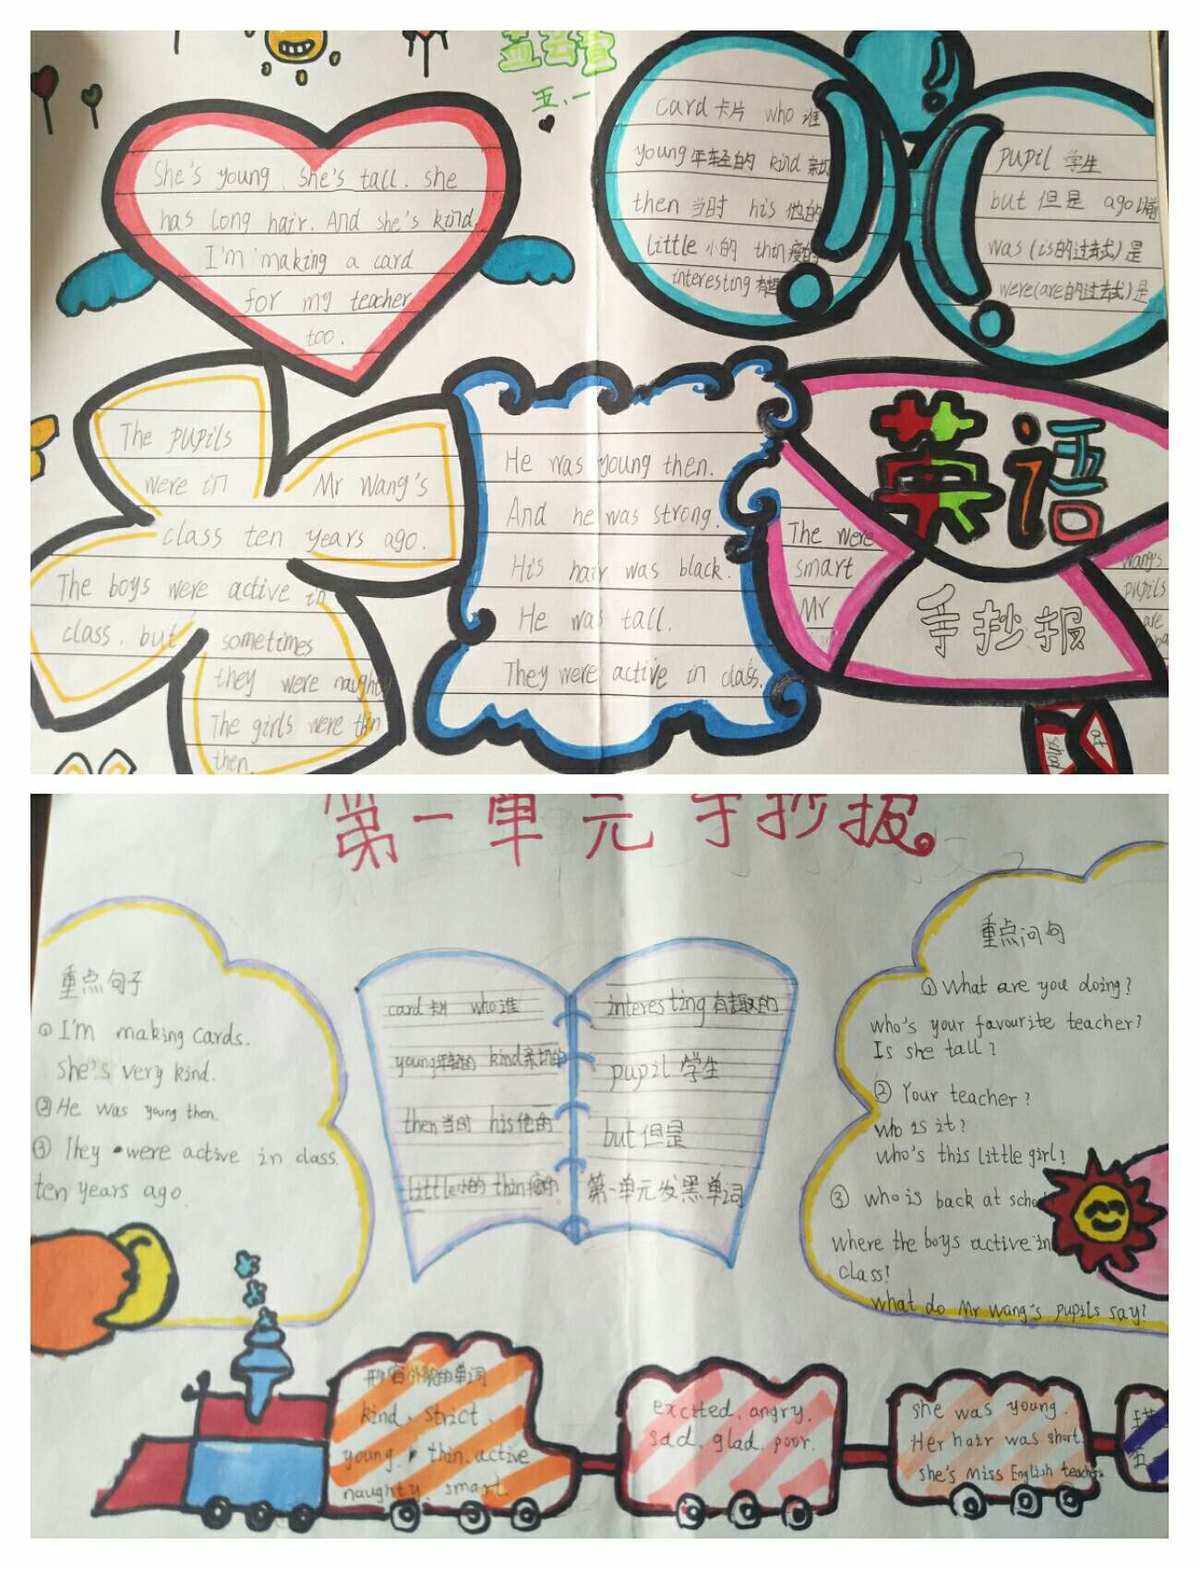 五、一
She's young. She's tall. she
has long hair. And she's kind.
I'm making a card
for my teacher
too.
card 卡片 who 谁
young 年轻的 kind
then 当时 his 他的
little 小的 thin 瘦的
interesting
pupil 学生
but 但是 ago
was (is的过去式) 是
were (are的过去式) 是
The pupils
were in
Mr Wang's
class ten years ago.
The boys were active in
class. but sometimes
they were naughty
The girls were thin
then.
He was young then.
And he was strong.
His hair was black.
He was tall.
They were active in class.
英语
手抄报
The were
smart
Mr
Wang's
pupils
are
at
school
第一单元手抄报
重点句子
① I'm making cards.
she's very kind.
② He was young then.
③ They were active in class.
ten years ago.
card 卡片 who 谁
young 年轻的 kind 亲切的
then 当时 his 他的
little 小的 thin 瘦的
interesting 有趣的
pupil 学生
but 但是
第一单元发黑单词
重点问句
① What are you doing?
who's your favourite teacher?
Is she tall?
② Your teacher?
who is it?
who's this little girl?
③ who is back at
where the boys active in
class?
what do Mr Wang's pupils say?
形容外貌的单词
kind、strict、
young、thin. active
naughty. smart.
excited. angry.
sad. glad. poor.
she was young.
Her hair was short.
she's Miss English teacher.
五